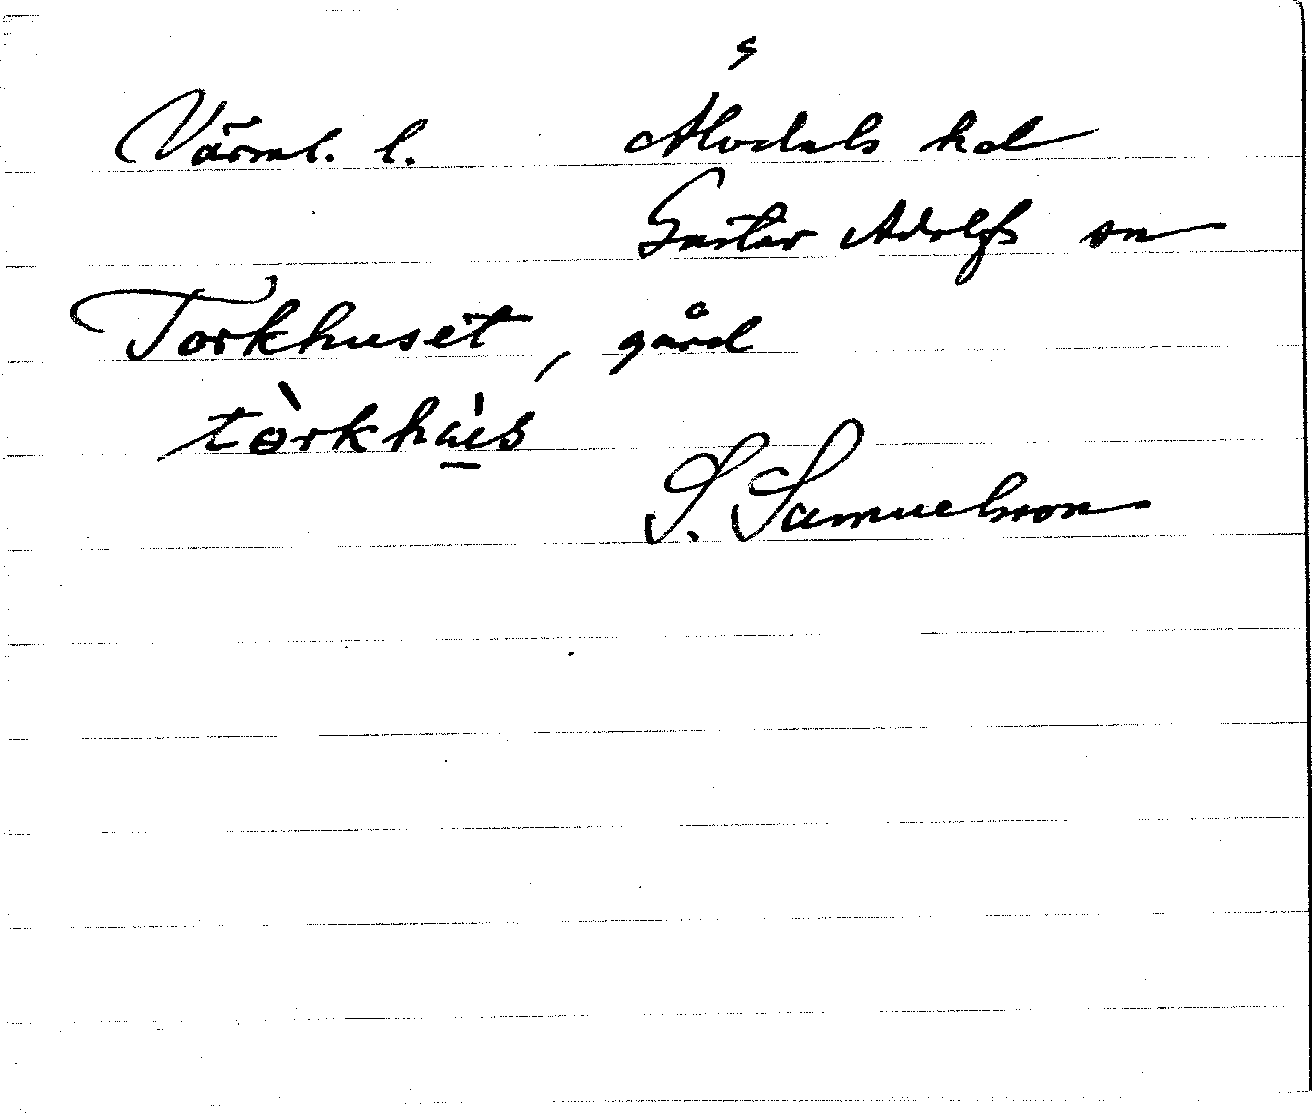 s
Värml. l. Älvdals hd
Gustav Adolfs sn
Torkhuset, gård
tòrkhùs
S. Samuelsson